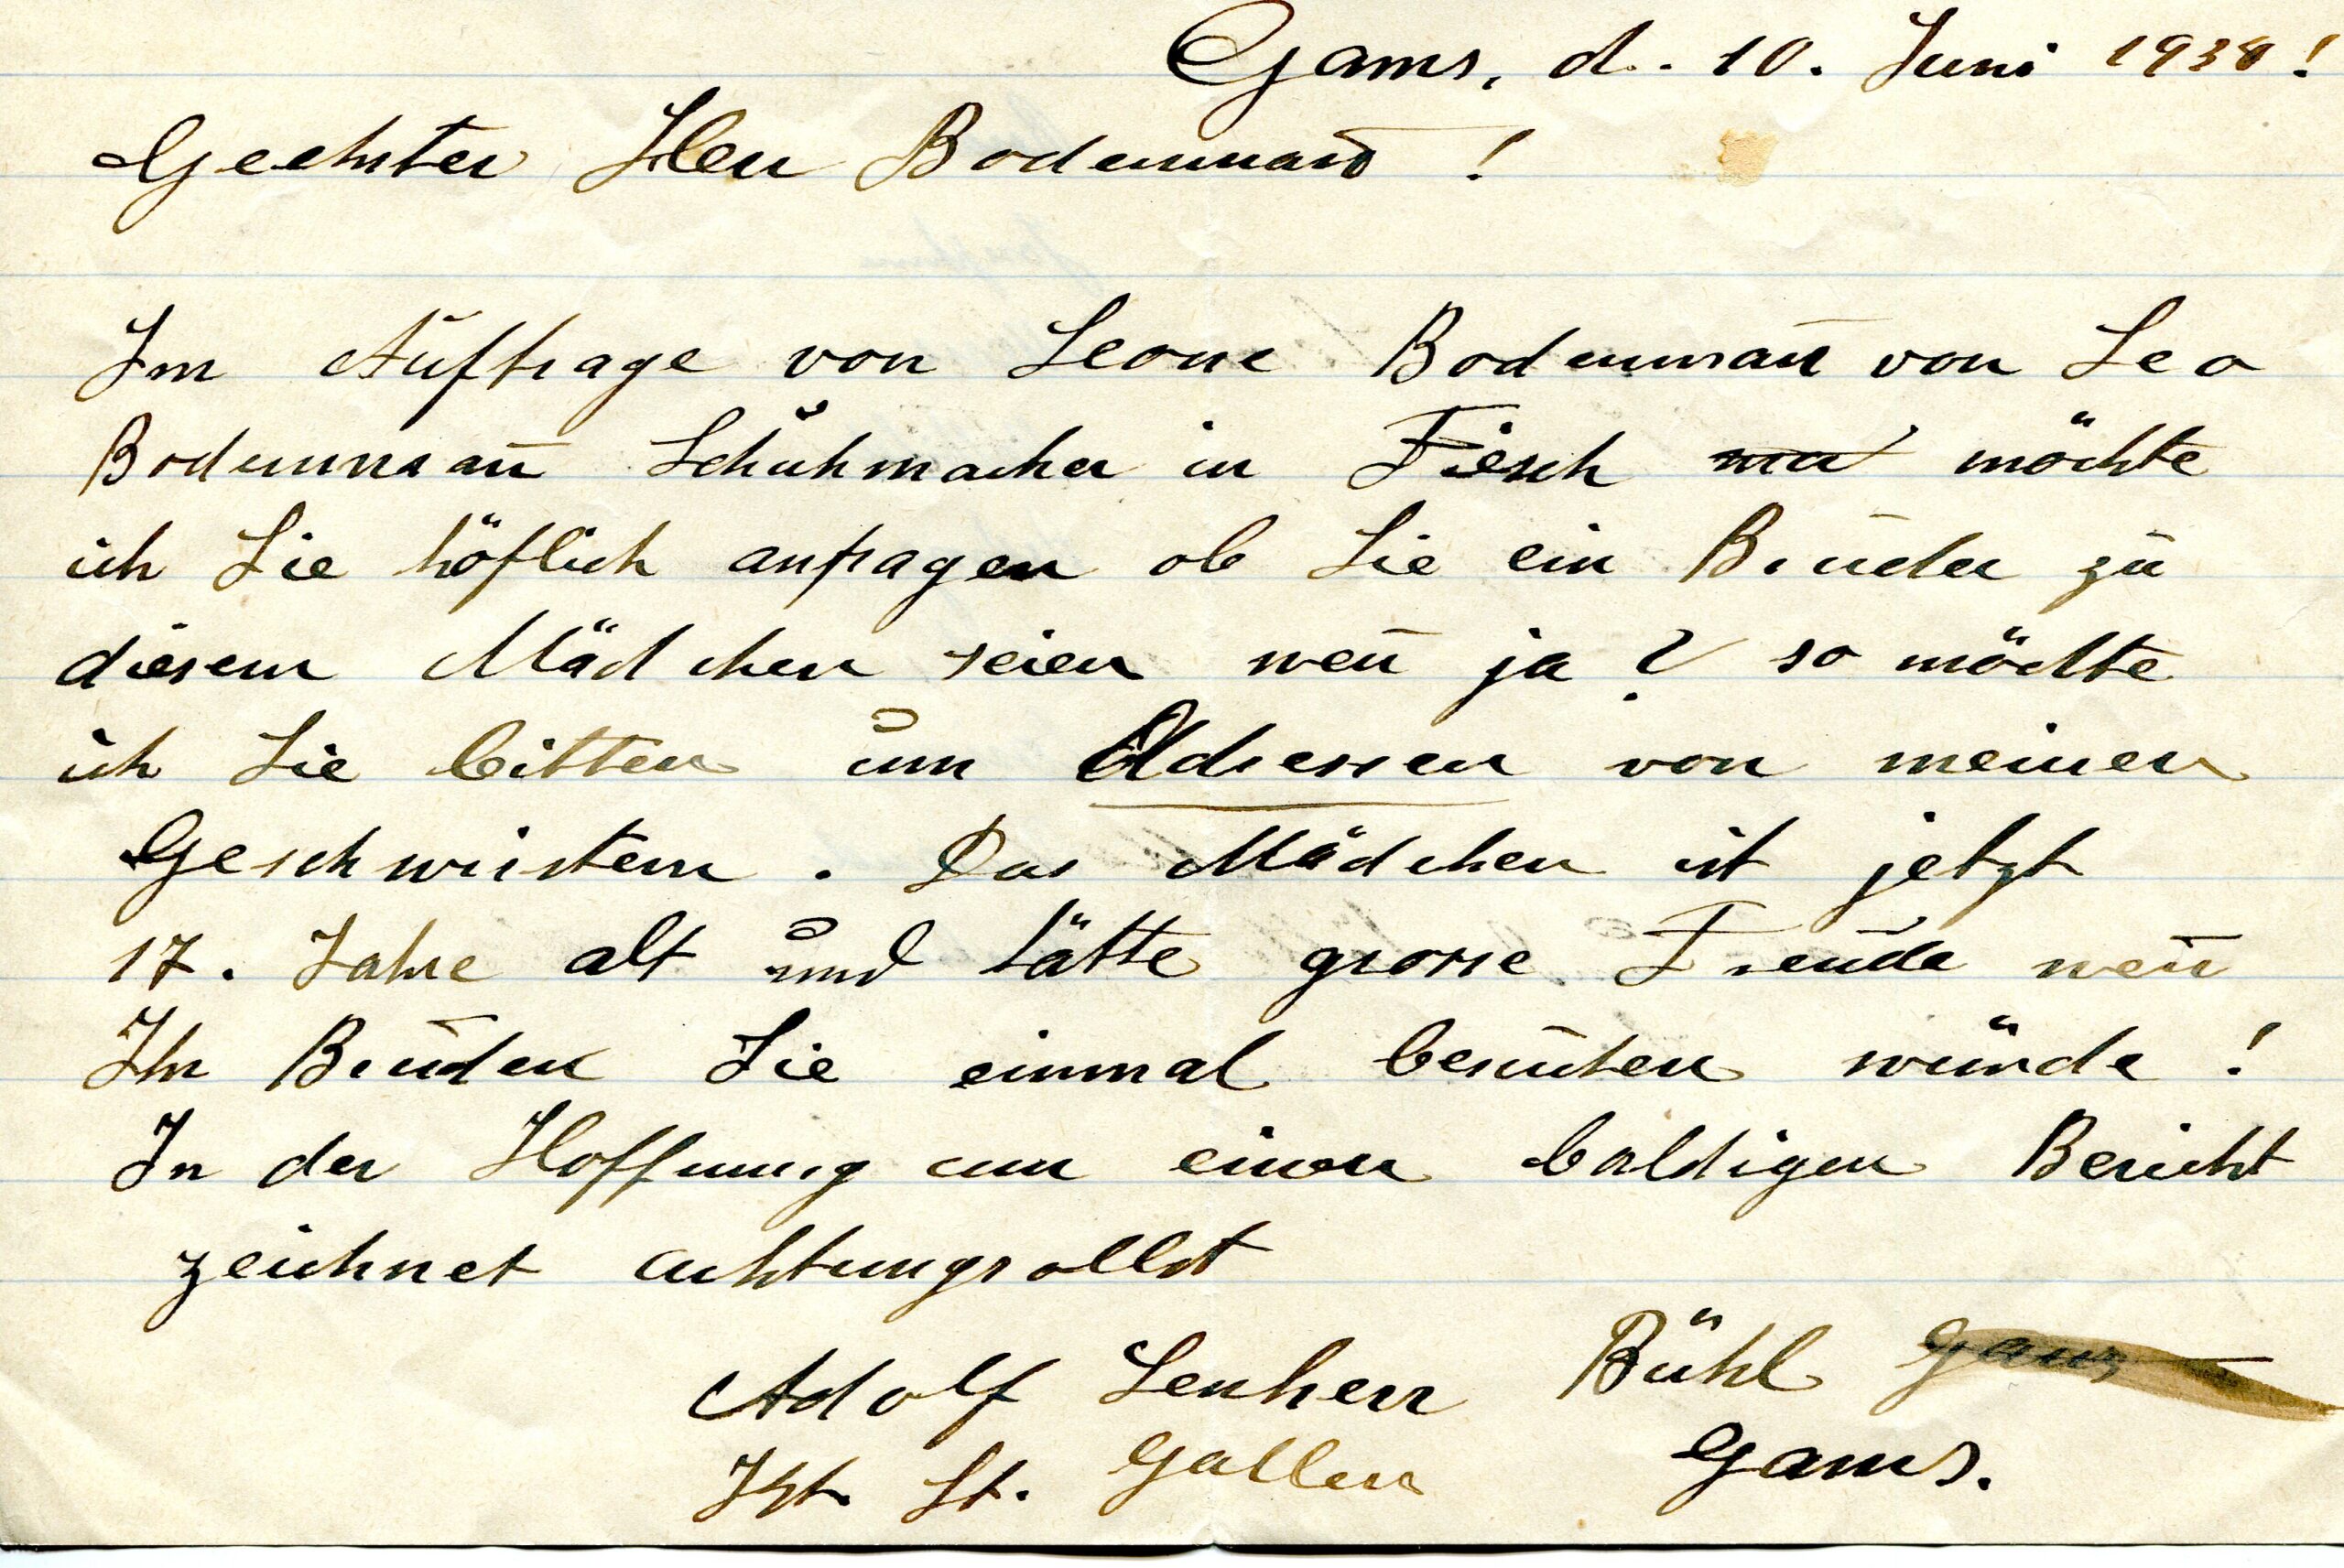 Gams, d. 10. Juni 1930!
Geehrter Herr Bodenmann!
Im Auftrage von Leone Bodenmañ von Leo
Bodenmañ Schuhmacher in Fiesch möchte
ich Sie höflich anfragen ob Sie ein Bruder zu
diesem Mädchen seien weñ ja? so möchte
ich Sie bitten um Adressen von meinen
Geschwistern. Das Mädchen ist jetzt
17. Jahre alt und hätte grosse Freude weñ
Ihr Bruder Sie einmal besuchen würde!
In der Hoffnung um einen baldigen Bericht
zeichnet achtungsvollst
Adolf Lenherr Bühl Gams
Kt. St. Gallen Gams.